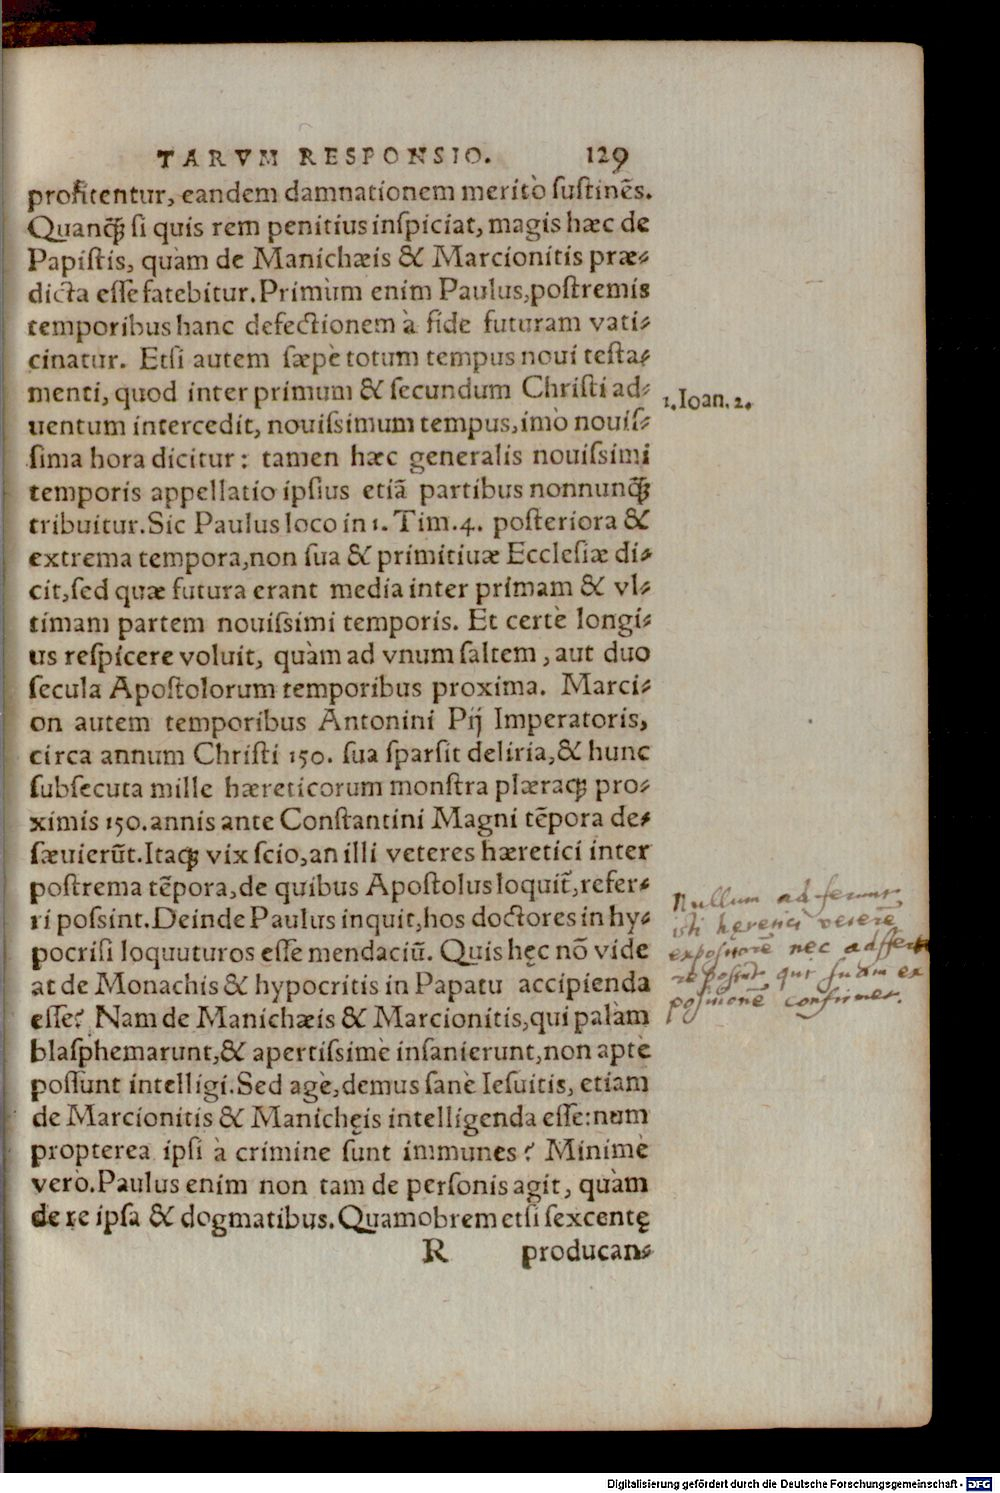 TARVM RESPONSIO. 129
profitentur, eandem damnationem meritò ſuſtinēt.
Quanq̃ ſi quis rem penitius inſpiciat, magis hæc de
Papiſtis, quàm de Manichæis & Marcionitis præ-
dicta eſſe fatebitur. Primùm enim Paulus, poſtremis
temporibus hanc defectionem à fide futuram vati-
cinatur. Etſi autem ſæpè totum tempus noui teſta-
menti, quod inter primum & ſecundum Chriſti ad-
1. Ioan. 2.
uentum intercedit, nouiſsimum tempus, imò nouiſ-
ſima hora dicitur: tamen hæc generalis nouiſsimi
temporis appellatio ipſius etiā partibus nonnunq̃
tribuitur. Sic Paulus loco in 1. Tim. 4. poſteriora &
extrema tempora, non ſua & primitiuæ Eccleſiæ di-
cit, ſed quæ futura erant media inter primam & vl-
timam partem nouiſsimi temporis. Et certè longi-
us reſpicere voluit, quàm ad vnum ſaltem, aut duo
ſecula Apoſtolorum temporibus proxima. Marci-
on autem temporibus Antonini Pij Imperatoris,
circa annum Chriſti 150. ſua ſparſit deliria, & hunc
ſubſecuta mille hæreticorum monſtra plæraq; pro-
ximis 150. annis ante Conſtantini Magni tēpora de-
ſæuierūt. Itaq; vix ſcio, an illi veteres hæretici inter
poſtrema tēpora, de quibus Apoſtolus loquit̃, refer-
ri poſsint. Deinde Paulus inquit, hos doctores in hy-
pocriſi loquuturos eſſe mendaciū. Quis hęc nō vide
at de Monachis & hypocritis in Papatu accipienda
eſſe? Nam de Manichæis & Marcionitis, qui palàm
blaſphemarunt, & apertiſsimè inſanierunt, non aptè
poſſunt intelligi. Sed agè, demus ſanè Ieſuitis, etiam
de Marcionitis & Manichęis intelligenda eſſe: num
propterea ipſi à crimine ſunt immunes? Minimè
verò. Paulus enim non tam de perſonis agit, quàm
de re ipſa & dogmatibus. Quamobrem etſi ſexcentę
R producan-
Nullum adferunt
iſti hęretici veterē
expoſitorē nec adffer
re poſsunt qui ſuam ex
poſitionē confirmet.
Digitalisierung gefördert durch die Deutsche Forschungsgemeinschaft - DFG